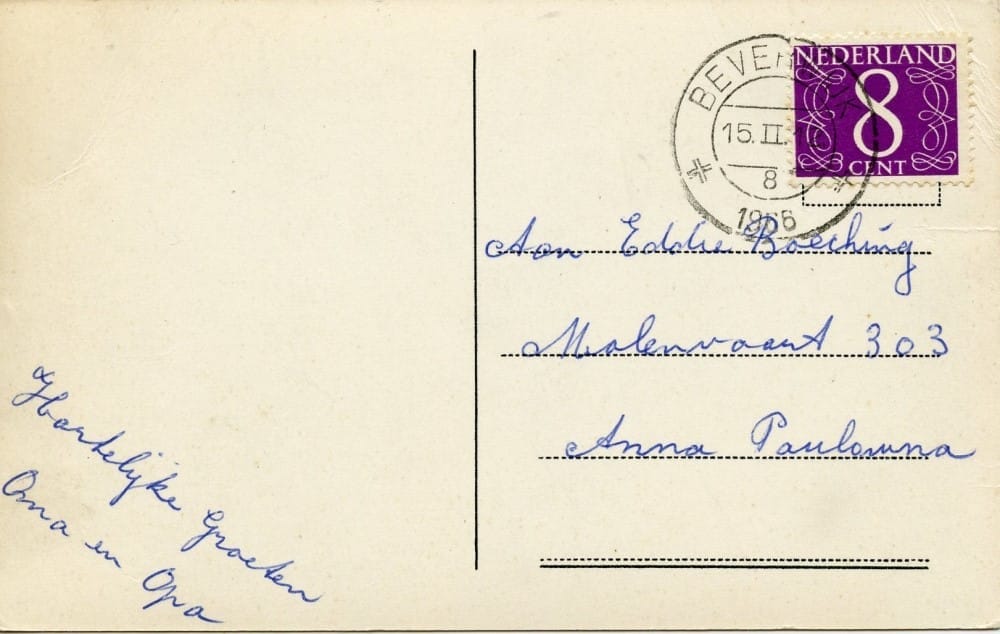 Hartelijke Groeten
Oma en Opa
NEDERLAND
8
CENT
BEVERWIJK
15.II.
8
1966
Aan Eddie Boeching
Molenvaart 303
Anna Paulowna